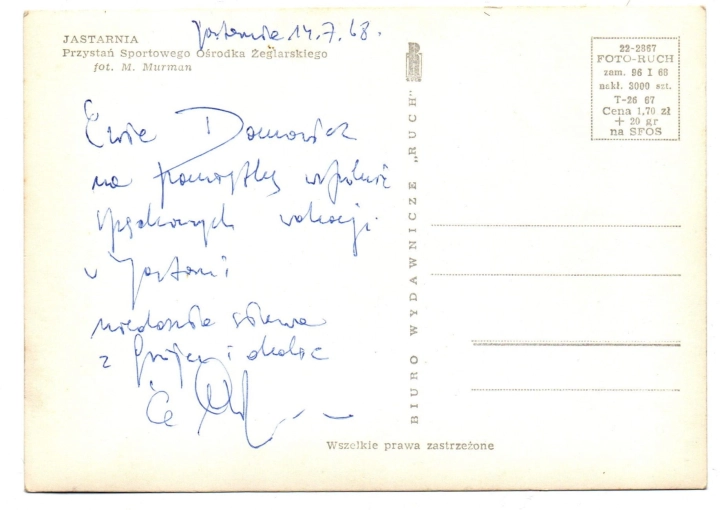 JASTARNIA
Przystań Sportowego Ośrodka Żeglarskiego
fot. M. Murman
Jastarnia 14.7.68.
Ewie Domowicz
na pamiątkę wspólnie
spędzonych wakacji
w Jastarni
z i okolic
BIURO WYDAWNICZE „RUCH"
22-2867
FOTO-RUCH
zam. 96 I 68
nakł. 3000 szt.
T-26 67
Cena 1,70 zł
+ 20 gr
na SFOS
Wszelkie prawa zastrzeżone